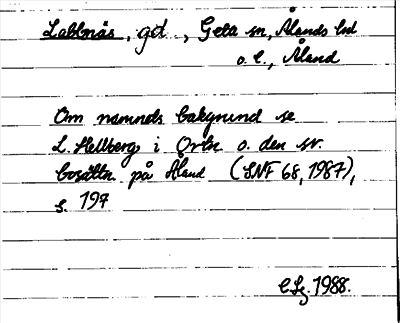 Labbnäs, gd, Geta sn, Ålands hd
o. l., Åland
Om namnets bakgrund se
L. Hellberg i Ortn. o. den sv.
bosättn. på Åland (SNF 68, 1987),
s. 197
C.Lg. 1988.